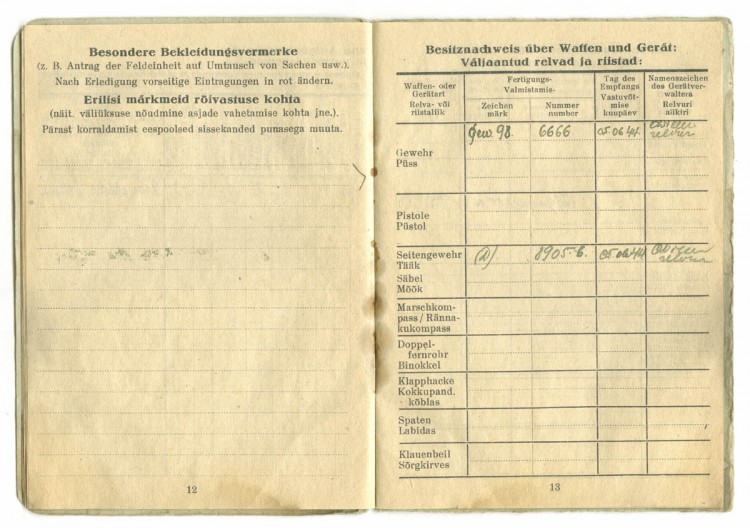 Besondere Bekleidungsvermerke
(z. B. Antrag der Feldeinheit auf Umtausch von Sachen usw.).
Nach Erledigung vorseitige Eintragungen in rot ändern.
Erilisi märkmeid rõivastuse kohta
(näit. väliüksuse nõudmine asjade vahetamise kohta jne.).
Pärast korraldamist eespoolsed sissekanded punasega muuta.
12
Besitznachweis über Waffen und Gerät:
Väljaantud relvad ja riistad:
Waffen- oder
Gerätart
Relva- või
riistaliik
Fertigungs-
Valmistamis-
Zeichen
märk
Nummer
number
Tag des
Empfangs
Vastuvõt-
mise
kuupäev
Namenszeichen
des Gerätver-
walters
Relvuri
allkiri
Gewehr
Püss
Gew. 98. 6666 05.06.44.
Pistole
Püstol
Seitengewehr
Tääk
Säbel
Mõõk
8905-b. 05.06.44
Marschkom-
pass / Ränna-
kukompass
Doppel-
fernrohr
Binokkel
Klapphacke
Kokkupand.
kõblas
Spaten
Labidas
Klauenbeil
Sõrgkirves
13